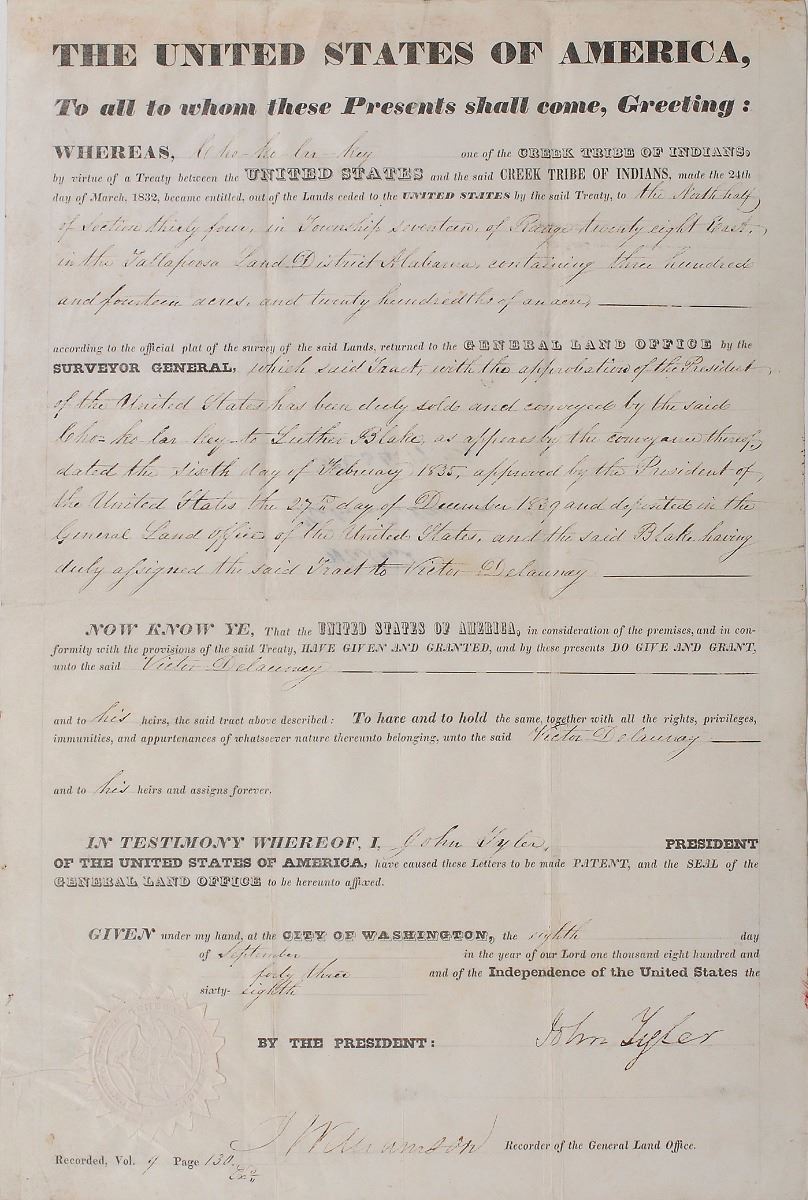 THE UNITED STATES OF AMERICA,
To all to whom these Presents shall come, Greeting:
WHEREAS, Cho-ko-lar-key one of the CREEK TRIBE OF INDIANS,
by virtue of a Treaty between the UNITED STATES and the said CREEK TRIBE OF INDIANS, made the 24th
day of March, 1832, became entitled, out of the Lands ceded to the UNITED STATES by the said Treaty, to the North half
of Section thirty four, in Township seventeen, of Range twenty eight East,
in the Tallapoosa Land District Alabama, containing three hundred
and fourteen acres, and twenty hundredths of an acre,
according to the official plat of the survey of the said Lands, returned to the GENERAL LAND OFFICE by the
SURVEYOR GENERAL, which said Tract, with the approbation of the President
of the United States has been duly sold and conveyed by the said
Cho-ko-lar-key to Luther Blake, as appears by the conveyance thereof,
dated the sixth day of February 1835, approved by the President of
the United States the 27th day of December 1839 and deposited in the
General Land office of the United States, and the said Blake having
duly assigned the said Tract to Victor Delaunay
NOW KNOW YE, That the UNITED STATES OF AMERICA, in consideration of the premises, and in con-
formity with the provisions of the said Treaty, HAVE GIVEN AND GRANTED, and by these presents DO GIVE AND GRANT,
unto the said Victor Delaunay
and to his heirs, the said tract above described: To have and to hold the same, together with all the rights, privileges,
immunities, and appurtenances of whatsoever nature thereunto belonging, unto the said Victor Delaunay
and to his heirs and assigns forever.
IN TESTIMONY WHEREOF, I, John Tyler, PRESIDENT
OF THE UNITED STATES OF AMERICA, have caused these Letters to be made PATENT, and the SEAL of the
GENERAL LAND OFFICE to be hereunto affixed.
GIVEN under my hand, at the CITY OF WASHINGTON, the eighth day
of September in the year of our Lord one thousand eight hundred and
forty three and of the Independence of the United States the
sixty-eighth
BY THE PRESIDENT: John Tyler
J Williamson Recorder of the General Land Office.
Recorded, Vol. 9 Page 130